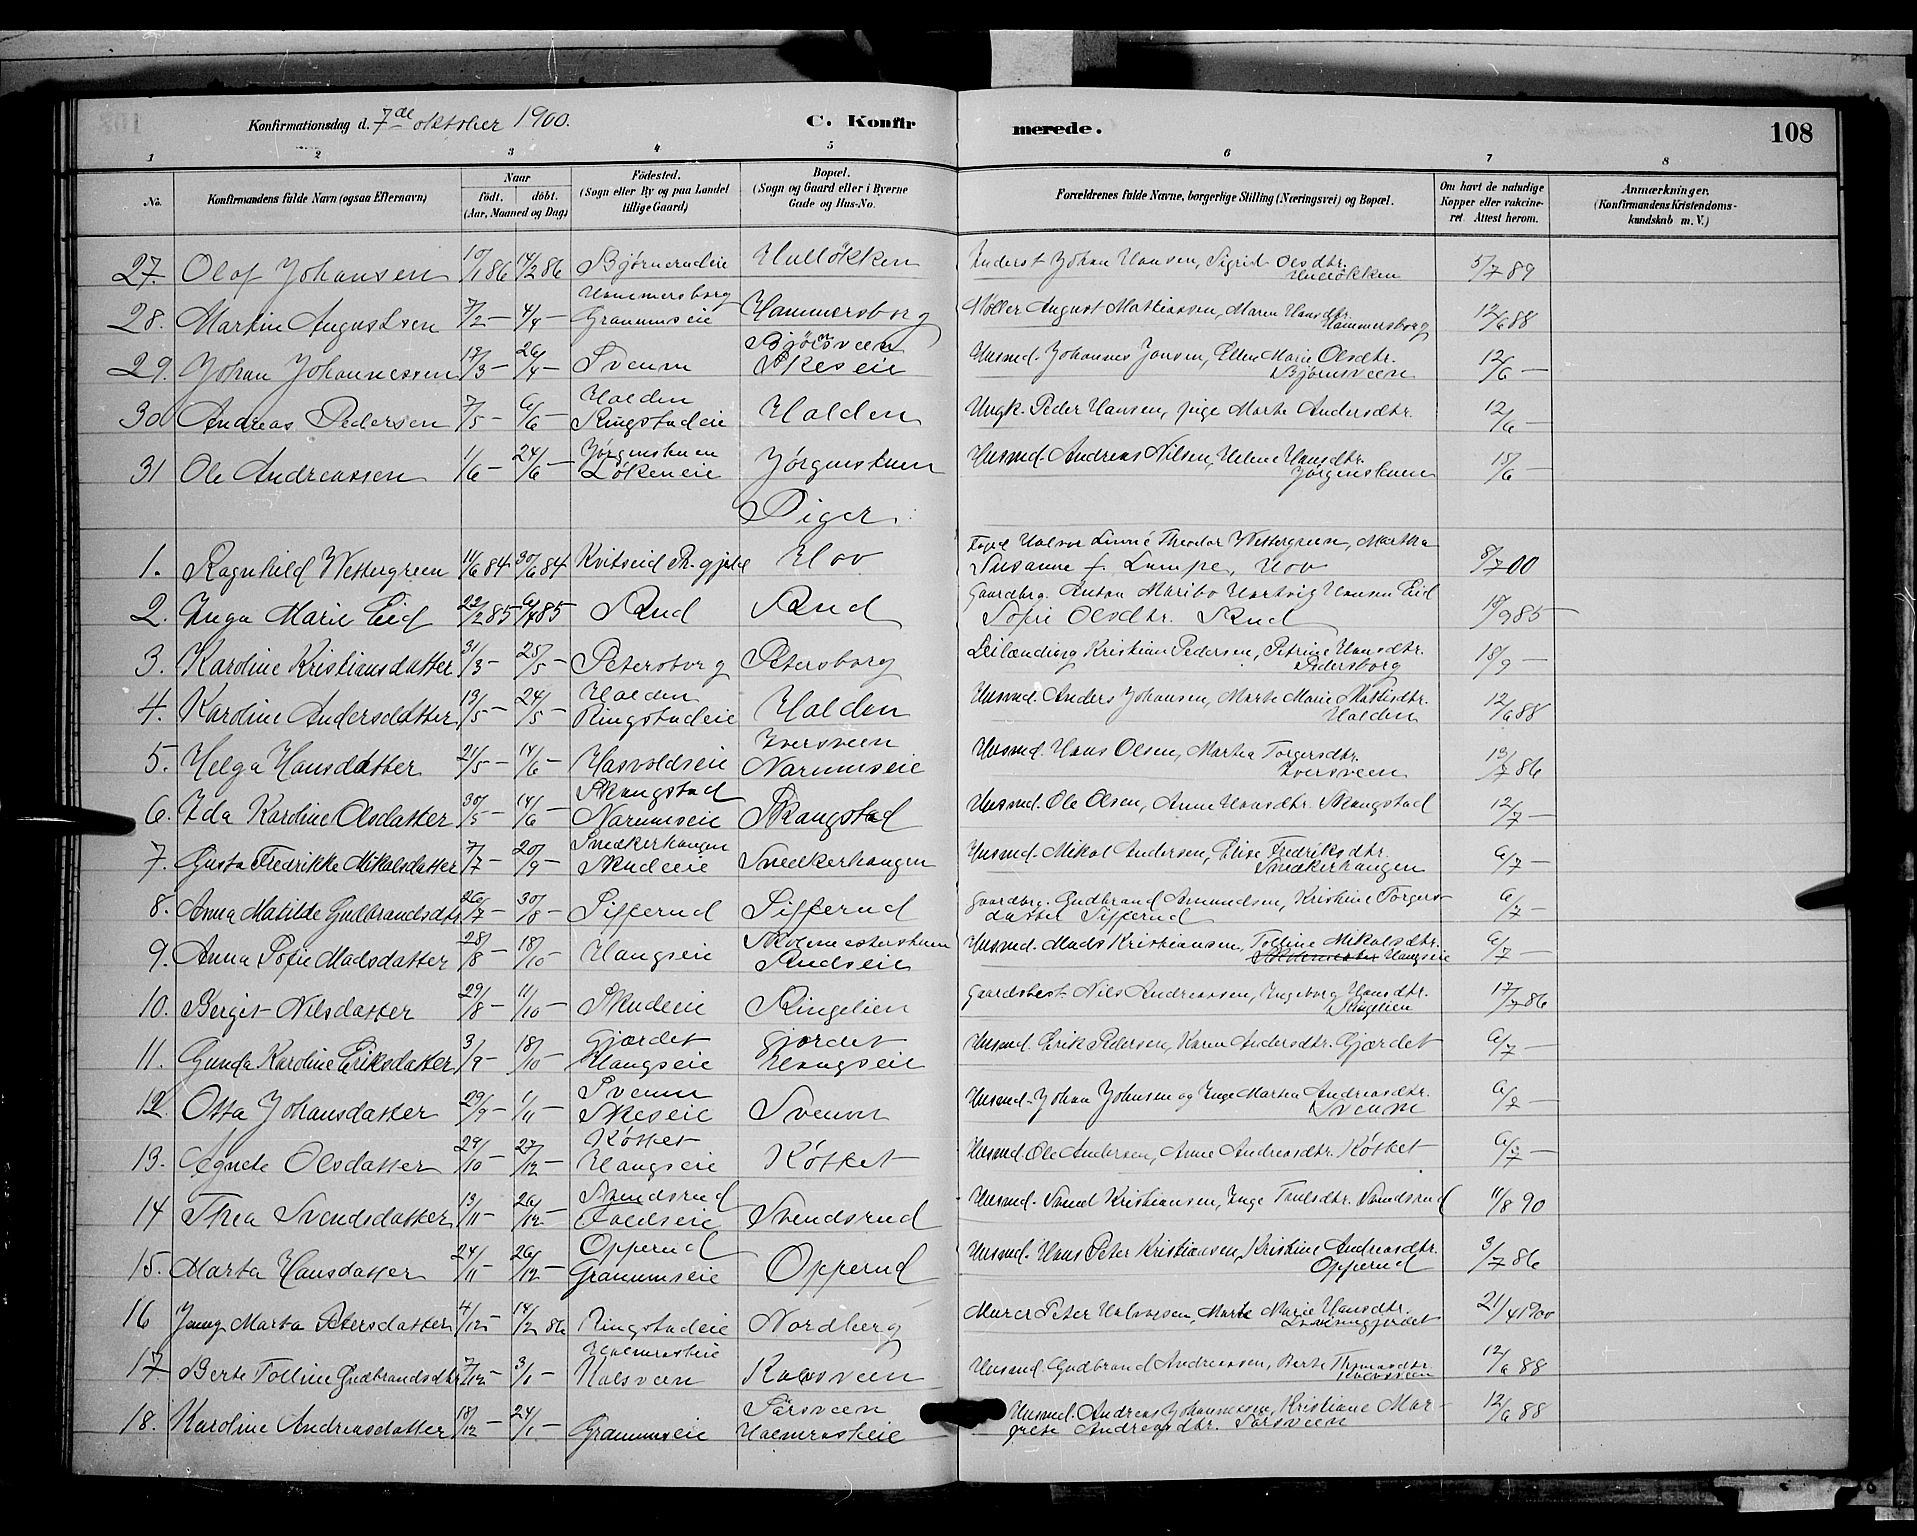 Konfirmationsdag d. 7de oktober 1900.
C. Konfir
merede.
108
1 2 3 4 5 6 7 8
No.
Konfirmandens fulde Navn (ogsaa Efternavn)
Naar
født. døbt.
(Aar, Maaned og Dag)
Fødested.
(Sogn eller By og paa Landet
tillige Gaard)
Bopæl.
(Sogn og Gaard eller i Byerne
Gade og Hus-No.
Forældrenes fulde Navne, borgerlige Stilling (Næringsvei) og Bopæl.
Om havt de naturlige
Kopper eller vakcine-
ret. Attest herom.
Anmærkninger.
(Konfirmandens Kristendoms-
kundskab m. V.)
27. Olaf Johansen 10/1 86 14/2 86 Bjørnerudeie Hulløkken Johan Hansen, Sigrid Olsdtr. Hulløkken 5/7 89
28. Martin Augustsen 7/2 – 4/4 – Hammersborg Granumseie Hammersborg Møller August Mathiassen, Maren Hansdtr. Hammersborg 12/6 88
29. Johan Johannessen 17/3 – 26/4 – Svenm Bjørnsveen Skeseie Husmd. Johannes Jonsen, Ellen Marie Olsdtr. Bjørnsveen 12/6 –
30 Andreas Pedersen 7/5 – 6/6 – Halden Ringstadeie Halden Ungk. Peder Hansen, pige Marte Andersdtr. 12/6 –
31 Ole Andreassen 1/6 – 24/6 – Jørgenstuen Løkeneie Jørgenstuen Husmd. Andreas Nilsen, Helene Hansdtr. Jørgenstuen 15/6 –
Piger.
1. Ragnhild Wettergreen 11/6 84 30/6 84 Kvitseid Pr.gjeld Hov Foged Halvor Linné Theodor Wettergreen, Martha Susanne f. Lumpe, Hov 8/7 00
2. Inga Marie Eid 22/2 85 6/4 85 Rud Rud Gaardbrg. Anton Maribo Hartvig Hansen Eid Sofie Olsdtr. Rud 18/9 85 –
3. Karoline Kristiansdatter 31/3 – 25/5 – Petersborg Petersborg Deilænding Kristian Pedersen, Petrine Hansdtr. Pedersborg 18/9 –
4. Karoline Andersdatter 13/5 – 24/5 – Halden Ringstadeie Halden Husmd. Anders Johansen, Marte Marie Mathisdtr. Halden 12/6 88
5. Helga Hansdatter 21/5 – 14/6 – Hasvoldseie Iversveen Narumseie Husmd. Hans Olsen, Marthea Torgersdtr. Iversveen 13/7 86
6. Ida Karoline Olsdatter 30/5 – 14/6 – Skangstad Narumseie Skangstad Husmd. Ole Olsen, Anne Hansdtr. Skangstad 12/7 –
7. Gusta Fredrikke Mikalsdatter 7/7 – 20/9 – Snedkerhaugen Skudeie Snedkerhaugen Husmd. Mikal Andersen, Elise Fredriksdtr. Snedkerhaugen 6/7 –
8. Anna Matilde Gulbrandsdtr. 26/7 – 30/8 – Sifferud Sifferud Gaardbrg. Gudbrand Amundsen, Kristine Torgersdatter Sifferud 6/7 –
9. Anna Sofie Madsdatter 28/8 – 18/10 – Haugseie Skolemesterstuen Rudseie Husmd. Mads Kristiansen, Tolline Mikalsdtr. Haugseie 6/7 –
10. Bergit Nilsdatter 29/8 – 11/10 – Skudeie Ringelien Gaardsbest. Nils Andreassen, Ingeborg Hansdtr. Ringelien 17/7 86
11. Gunda Karoline Eriksdatter 3/9 – 18/10 – Gjærdet Haugseie Gjordet Haugseie Husmd. Erik Pedersen, Karen Andersdtr. Gjærdet 6/7 –
12. Otta Johansdatter 29/9 – 1/11 – Svenm Skeseie Svenm Husmd. Johan Johnsen og Inge Marthea Andreasdtr. Svenm 6/7 –
13. Agnete Olsdatter 29/10 – 27/12 – Køtket Haugseie Køtket Husmd. Ole Andersen, Anne Andreasdtr. Køtket 6/7 –
14 Thea Svendsdatter 13/11 – 26/12 – Svendsrud Svendsrud Husmd. Svend Kristiansen, Inge Trulsdtr. Svendsrud 11/8 90
15. Marta Hansdatter 24/11 – 26/12 – Opperud Granumseie Opperud Husmd. Hans Peter Kristiansen, Kristine Andreasdtr. Opperud 3/7 86
16 Jenny Marta Petersdatter 4/12 – 14/2 86 Ringstadeie Nordberg Murer Peter Halvorsen, Marte Marie Hansdtr. 21/4 1900
17. Berte Tolline Gudbrandsdtr. 7/12 – 3/1 – Halmrasteie Kalvsveen Husmd. Gudbrand Andreassen, Berte Thomasdtr. Kalvsveen 12/6 88
18. Karoline Andreasdatter 18/12 – 24/1 – Granumseie Sørsveen Halmrasteie Husmd. Andreas Johannessen, Kristiane Margrete Andreasdtr. Sørsveen 12/6 88